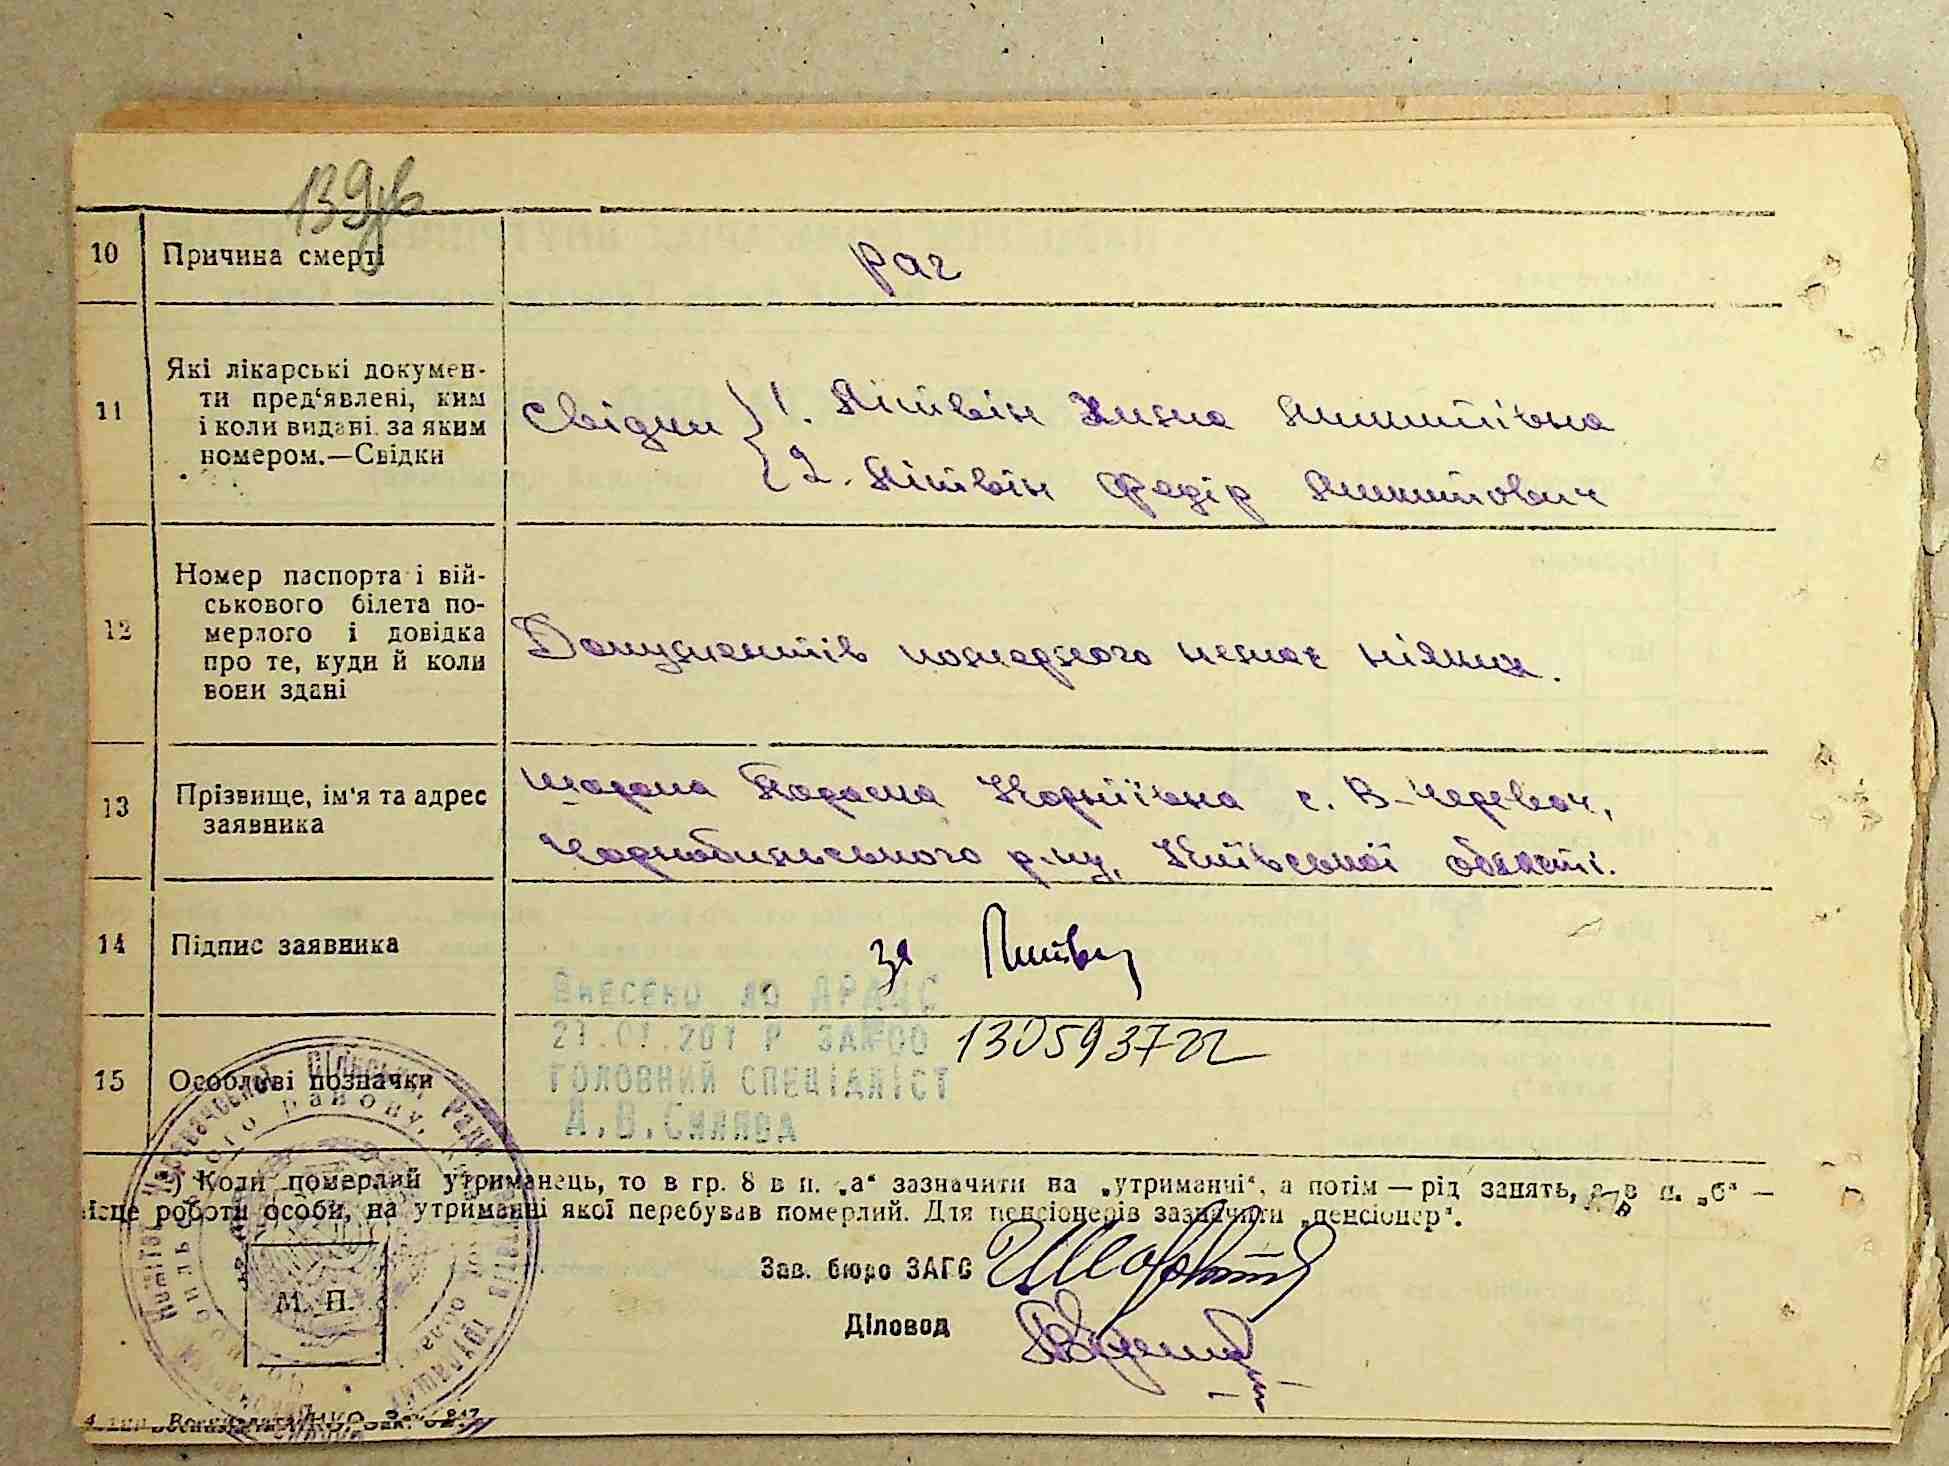 139зв
10 Причина смерті
рак
11 Які лікарські докумен-
ти пред‘явлені, ким
і коли видані за яким
номером.—Свідки
Свідки 1. Літвін Ганна Микитівна
2. Літвін Федір Микитович
12 Номер паспорта і вій-
ськового білета по-
мерлого і довідка
про те, куди й коли
вони здані
Документів померлого немає ніяких.
13 Прізвище, ім'я та адрес
заявника
Параска Корніївна с. В-Черевач,
Чорнобильського р-ну, Київської області.
14 Підпис заявника
за Литвин
15 Особливі позначки
Внесено до ДРАЦС
Р ЗА№00 130593722
головний спеціаліст
*) Коли померлий утриманець, то в гр. 8 в п. „а“ зазначити на „утриманні“, а потім — рід занять, а в п. „б“ —
місце роботи особи, на утриманні якої перебував померлий. Для пенсіонерів зазначити „пенсіонер“.
Зав. бюро ЗАГС
М. П.
Діловод